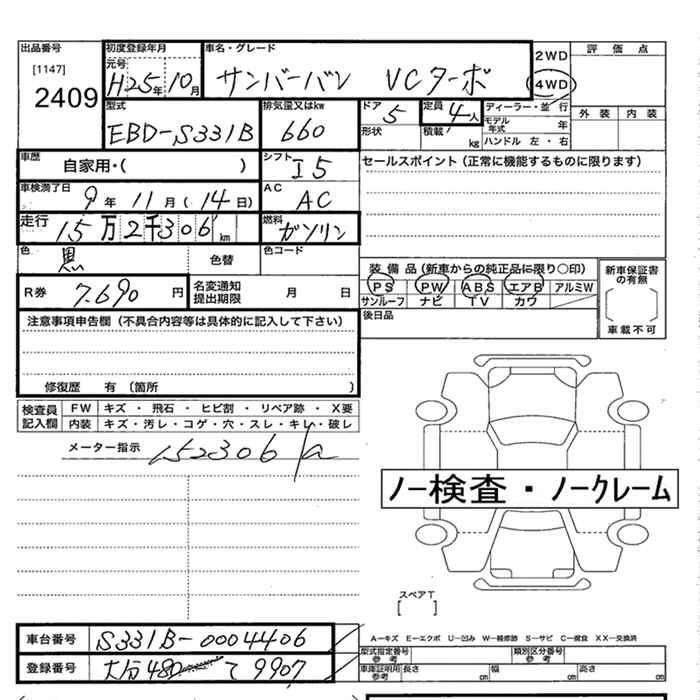 出品番号
[1147]
2409
初度登録年月
元号
H25年10月
車名・グレード
サンバーバン VCターボ
2WD
4WD
評価点
外装 内装
型式
EBD-S331B
排気量又はkw
660
ドア
5
形状
定員
4人
積載
kg
ディーラー・並行
モデル年式 年
ハンドル 左・右
車歴
自家用・( )
シフト
I5
セールスポイント(正常に機能するものに限ります)
車検満了日
9年11月(14日)
AC
AC
走行
15万2千306km
燃料
ガソリン
色
黒
色替
色コード
装備品(新車からの純正品に限り○印)
PS PW ABS エアB アルミW
サンルーフ ナビ TV カワ
後日品
新車保証書の有無
車載不可
R券
7.690円
名変通知
提出期限
月 日
注意事項申告欄(不具合内容等は具体的に記入して下さい)
修復歴 有 (箇所 )
検査員
記入欄
FW キズ・飛石・ヒビ割・リペア跡・X要
内装 キズ・汚レ・コゲ・穴・スレ・キレ・破レ
メーター指示
152306
ノー検査・ノークレーム
スペアT
[ ]
車台番号
S331B-0004406
登録番号
大分480 て 9907
A-キズ E-エクボ U-凹み W-補修跡 S-サビ C-腐食 XX-交換済
型式指定番号
参考
類別区分番号
参考
車庫証明用
参考
長さ cm 幅 cm 高さ cm